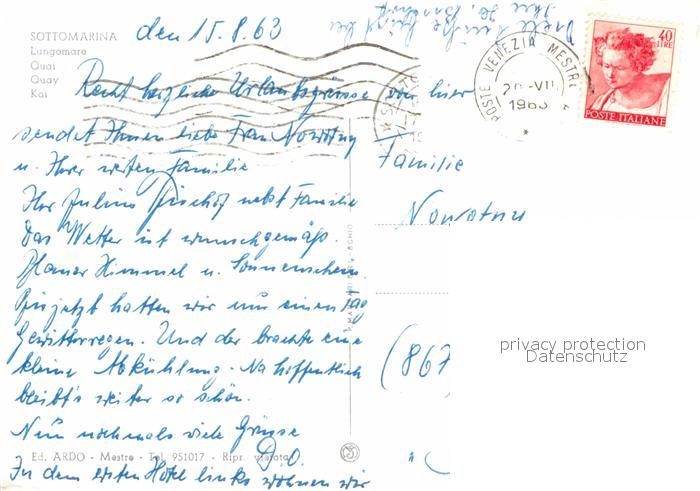 SOTTOMARINA
Lungomare
Quai
Quay
Kai
den 15.8.63
Recht herzliche Urlaubsgrüsse von hier
sendet Ihnen liebe Frau Nowotny
u. Ihrer werten Familie
Ihr Julius Bischof nebst Familie
Das Wetter ist wunschgemäß.
Blauer Himmel u. Sonnenschein
Bis jetzt hatten wir nur einen Tag
Gewitterregen. Und der brachte eine
kleine Abkühlung. Na hoffentlich
bleibt's weiter so schön.
Nun nochmals viele Grüsse
D.O.
In dem ersten Hotel links wohnen wir
Ed. ARDO - Mestre - Tel. 951017 - Ripr. vietata
POSTE VENEZIA MESTRE
-VIII
1963
40
LIRE
POSTE ITALIANE
Familie
Nowotny
(867
privacy protection
Datenschutz